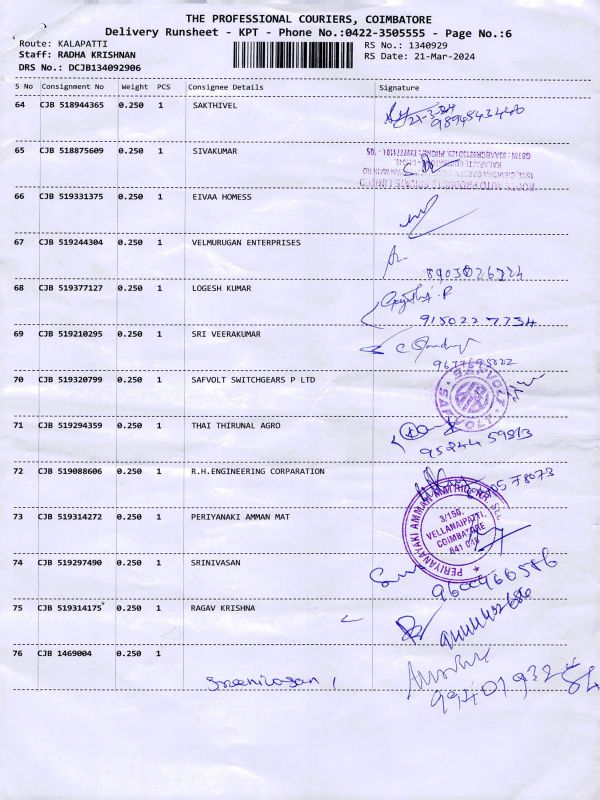 THE PROFESSIONAL COURIERS, COIMBATORE
Delivery Runsheet - KPT - Phone No.:0422-3505555 - Page No.:6
Route: KALAPATTI
RS No.: 1340929
Staff: RADHA KRISHNAN
RS Date: 21-Mar-2024
DRS No.: DCJB134092906
S No Consignment No Weight PCS Consignee Details Signature
64 CJB 518944365 0.250 1 SAKTHIVEL
21-3-24
65 CJB 518875609 0.250 1 SIVAKUMAR
66 CJB 519331375 0.250 1 EIVAA HOMESS
67 CJB 519244304 0.250 1 VELMURUGAN ENTERPRISES
68 CJB 519377127 0.250 1 LOGESH KUMAR
9150227734
69 CJB 519210295 0.250 1 SRI VEERAKUMAR
9677695022
70 CJB 519320799 0.250 1 SAFVOLT SWITCHGEARS P LTD
SAFVOLT
71 CJB 519294359 0.250 1 THAI THIRUNAL AGRO
95244 59813
72 CJB 519088606 0.250 1 R.H.ENGINEERING CORPARATION
73 CJB 519314272 0.250 1 PERIYANAKI AMMAN MAT
PERIYANAYAKI AMMAN
3/150,
VELLANAIPATTI,
COIMBATORE
641 048
74 CJB 519297490 0.250 1 SRINIVASAN
75 CJB 519314175 0.250 1 RAGAV KRISHNA
76 CJB 1469004 0.250 1
9940193284